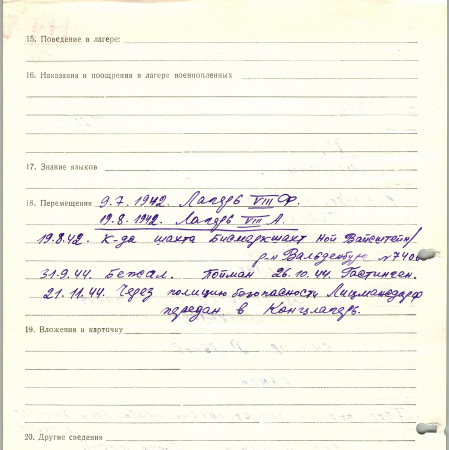 15. Поведение в лагере:
16. Наказания и поощрения в лагере военнопленных
17. Знание языков
18. Перемещения 9.7.1942. Лагерь VIII Ф.
19.8.1942. Лагерь VIII А.
19.8.42. К-да шахта Бисмаркшахт Ной Вайсштейн/
р-н Вальденбург №740
31.9.44. Бежал. Пойман 26.10.44. Гастинген.
21.11.44. Через полицию безопасности Лицманздорф
передан в Концлагерь.
19. Вложения в карточку
20. Другие сведения